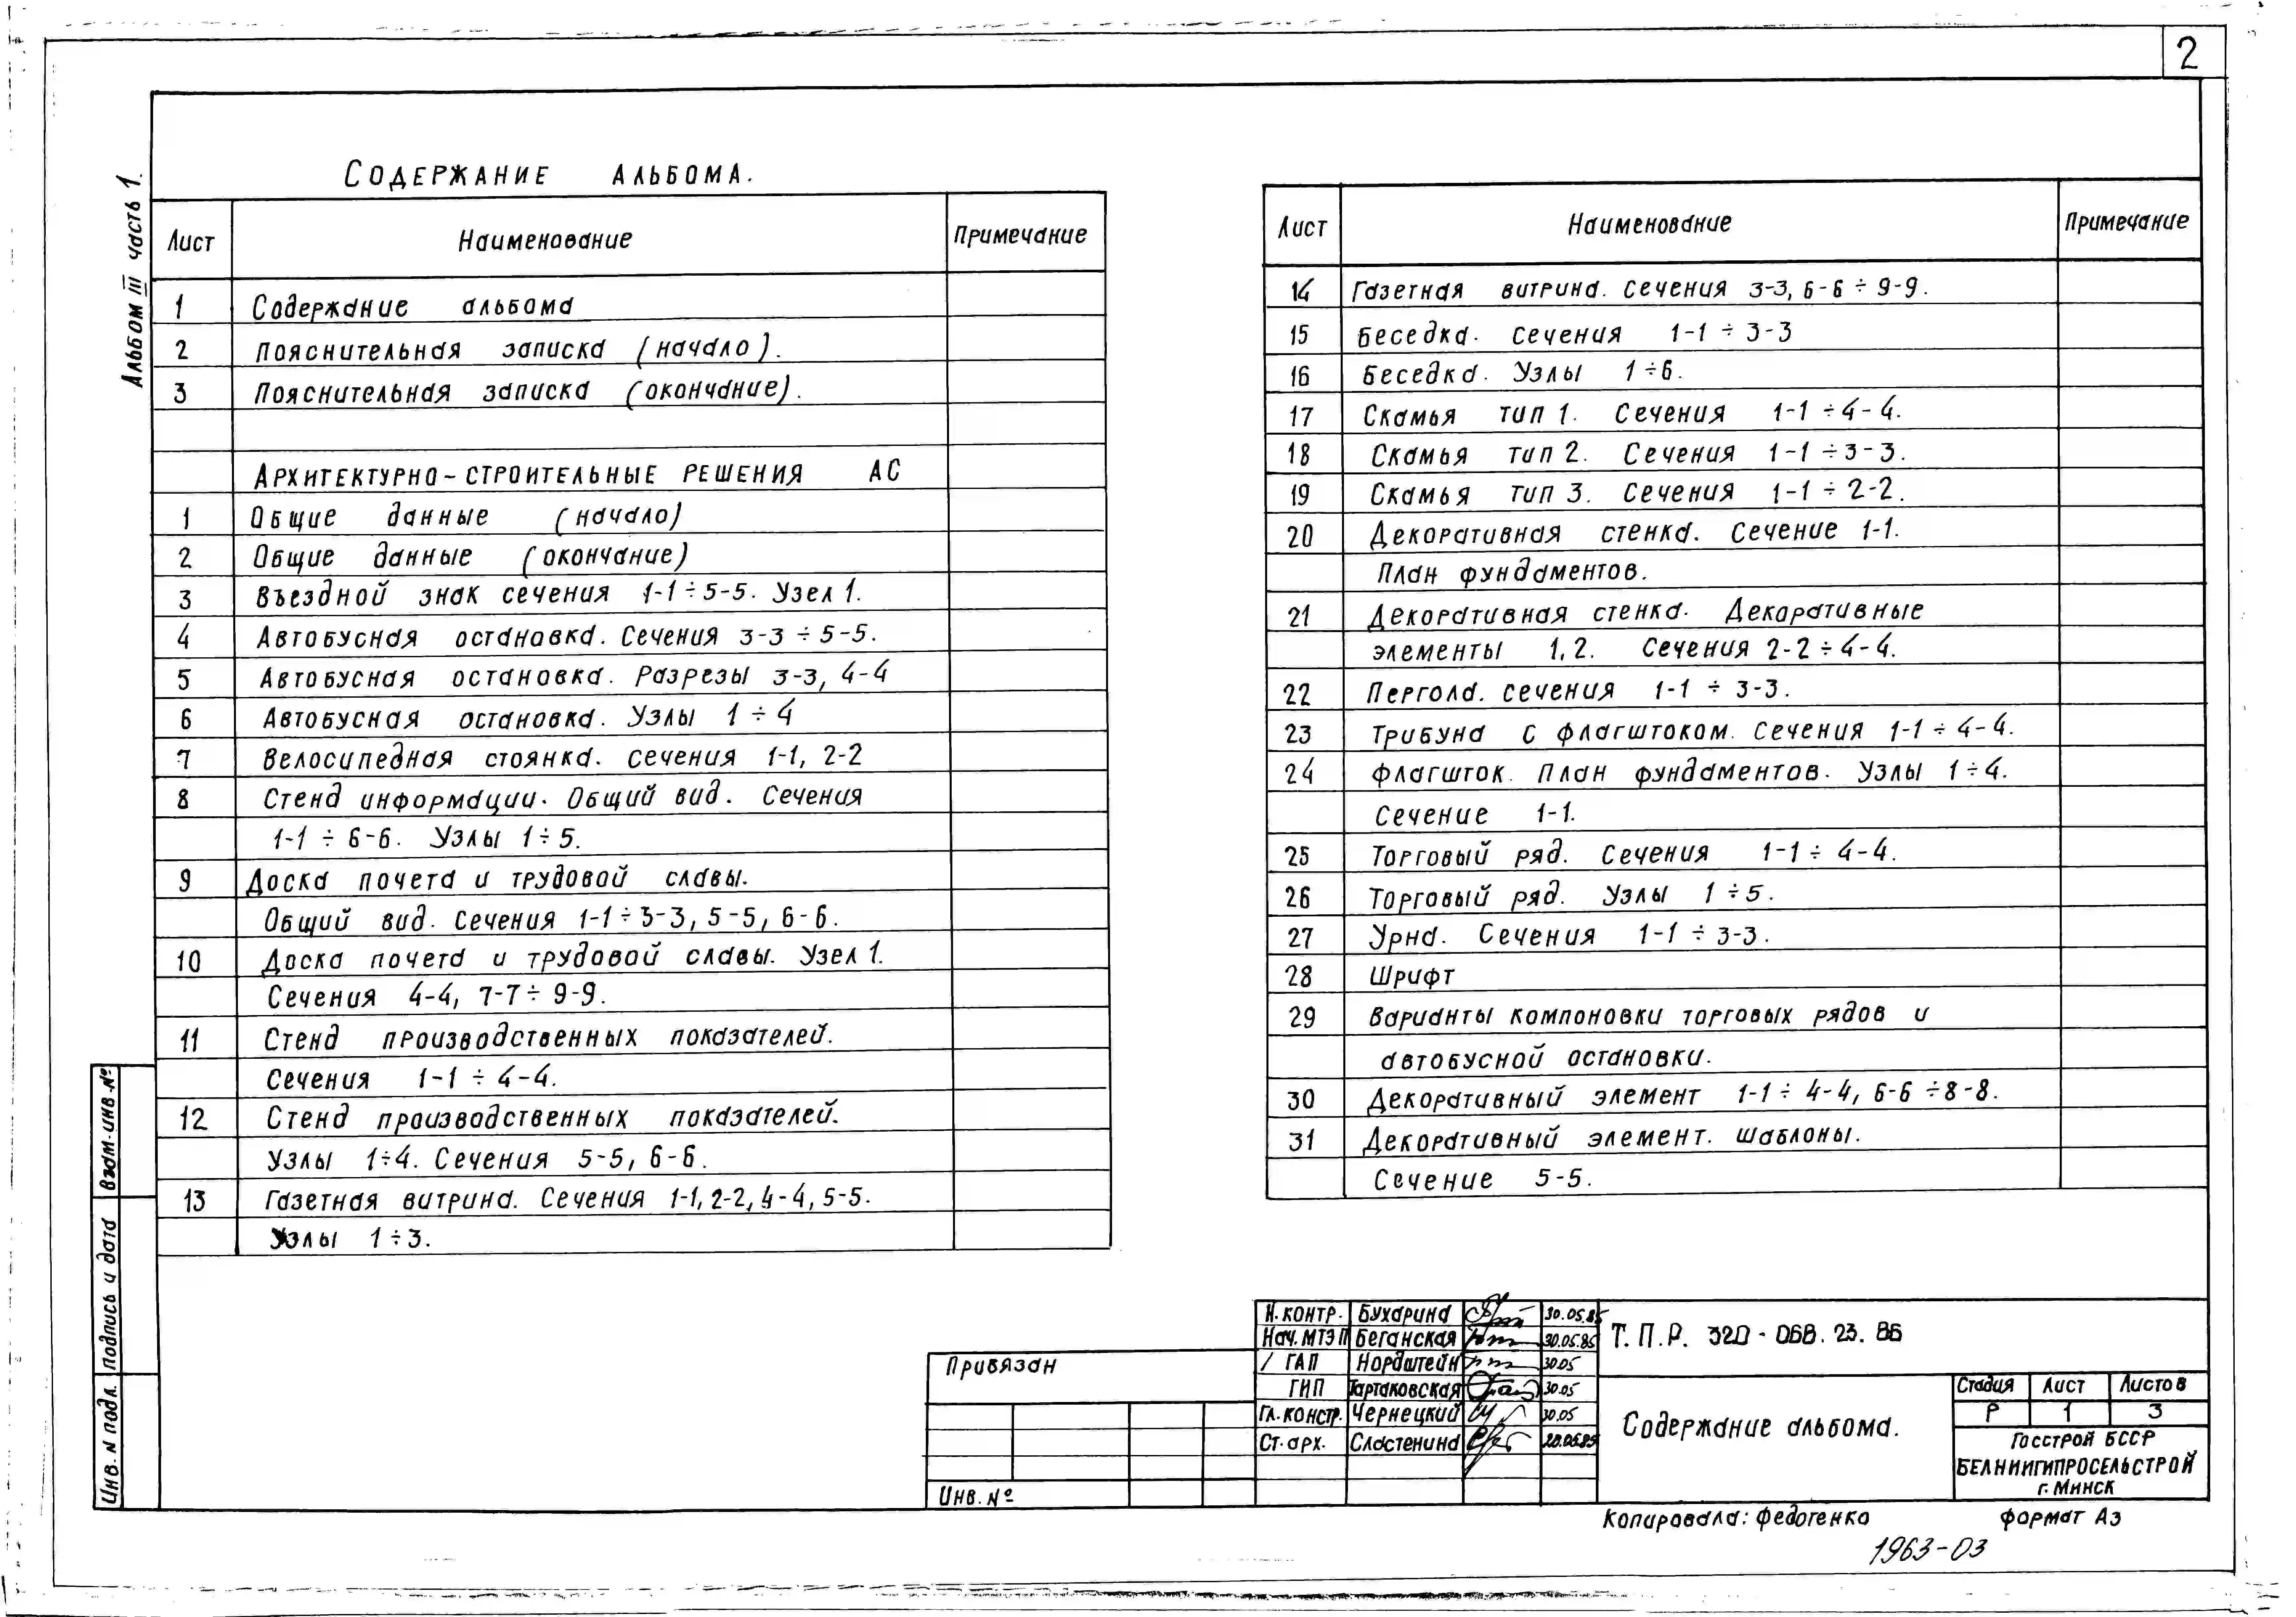 2
Альбом III часть 1.
Содержание альбома.
Лист Наименование Примечание
1 Содержание альбома
2 Пояснительная записка (начало).
3 Пояснительная записка (окончание).
Архитектурно-строительные решения АС
1 Общие данные (начало)
2 Общие данные (окончание)
3 Въездной знак сечения 1-1÷5-5. Узел 1.
4 Автобусная остановка. Сечения 3-3÷5-5.
5 Автобусная остановка. Разрезы 3-3, 4-4
6 Автобусная остановка. Узлы 1÷4
7 Велосипедная стоянка. Сечения 1-1, 2-2
8 Стенд информации. Общий вид. Сечения
1-1÷6-6. Узлы 1÷5.
9 Доска почета и трудовой славы.
Общий вид. Сечения 1-1÷3-3, 5-5, 6-6.
10 Доска почета и трудовой славы. Узел 1.
Сечения 4-4, 7-7÷9-9.
11 Стенд производственных показателей.
Сечения 1-1÷4-4.
12 Стенд производственных показателей.
Узлы 1÷4. Сечения 5-5, 6-6.
13 Газетная витрина. Сечения 1-1, 2-2, 4-4, 5-5.
Узлы 1÷3.
Лист Наименование Примечание
14 Газетная витрина. Сечения 3-3, 6-6÷9-9.
15 Беседка. Сечения 1-1÷3-3
16 Беседка. Узлы 1÷6.
17 Скамья тип 1. Сечения 1-1÷4-4.
18 Скамья тип 2. Сечения 1-1÷3-3.
19 Скамья тип 3. Сечения 1-1÷2-2.
20 Декоративная стенка. Сечение 1-1.
План фундаментов.
21 Декоративная стенка. Декоративные
элементы 1,2. Сечения 2-2÷4-4.
22 Пергола. Сечения 1-1÷3-3.
23 Трибуна с флагштоком. Сечения 1-1÷4-4.
24 Флагшток. План фундаментов. Узлы 1÷4.
Сечение 1-1.
25 Торговый ряд. Сечения 1-1÷4-4.
26 Торговый ряд. Узлы 1÷5.
27 Урна. Сечения 1-1÷3-3.
28 Шрифт
29 Варианты компоновки торговых рядов и
автобусной остановки.
30 Декоративный элемент 1-1÷4-4, 6-6÷8-8.
31 Декоративный элемент. Шаблоны.
Сечение 5-5.
Взам. инв. №
Подпись и дата
Инв. N подл.
Привязан
Инв. №
Н.контр. Бухарина 30.05.85
Нач. МТЭП Беганская 30.05.85
ГАП Нордштейн 30.05
ГИП Тартаковская 30.05
Гл. констр. Чернецкий 30.05
Ст. арх. Сластенина
Т.П.Р. 320-068.23.86
Содержание альбома.
Стадия Лист Листов
Р 1 3
Госстрой БССР
БЕЛНИИГИПРОСЕЛЬСТРОЙ
г. Минск
Копировала: Федотенко Формат А3
1963-03